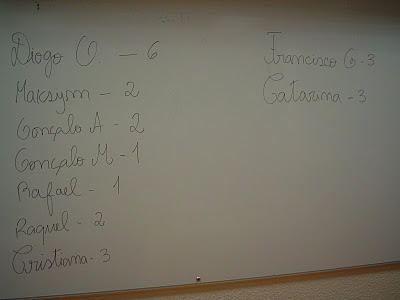 Diogo O. - 6
Maksym - 2
Gonçalo A - 2
Gonçalo M - 1
Rafael - 1
Raquel - 2
Cristiana - 3
Francisco G - 3
Catarina - 3